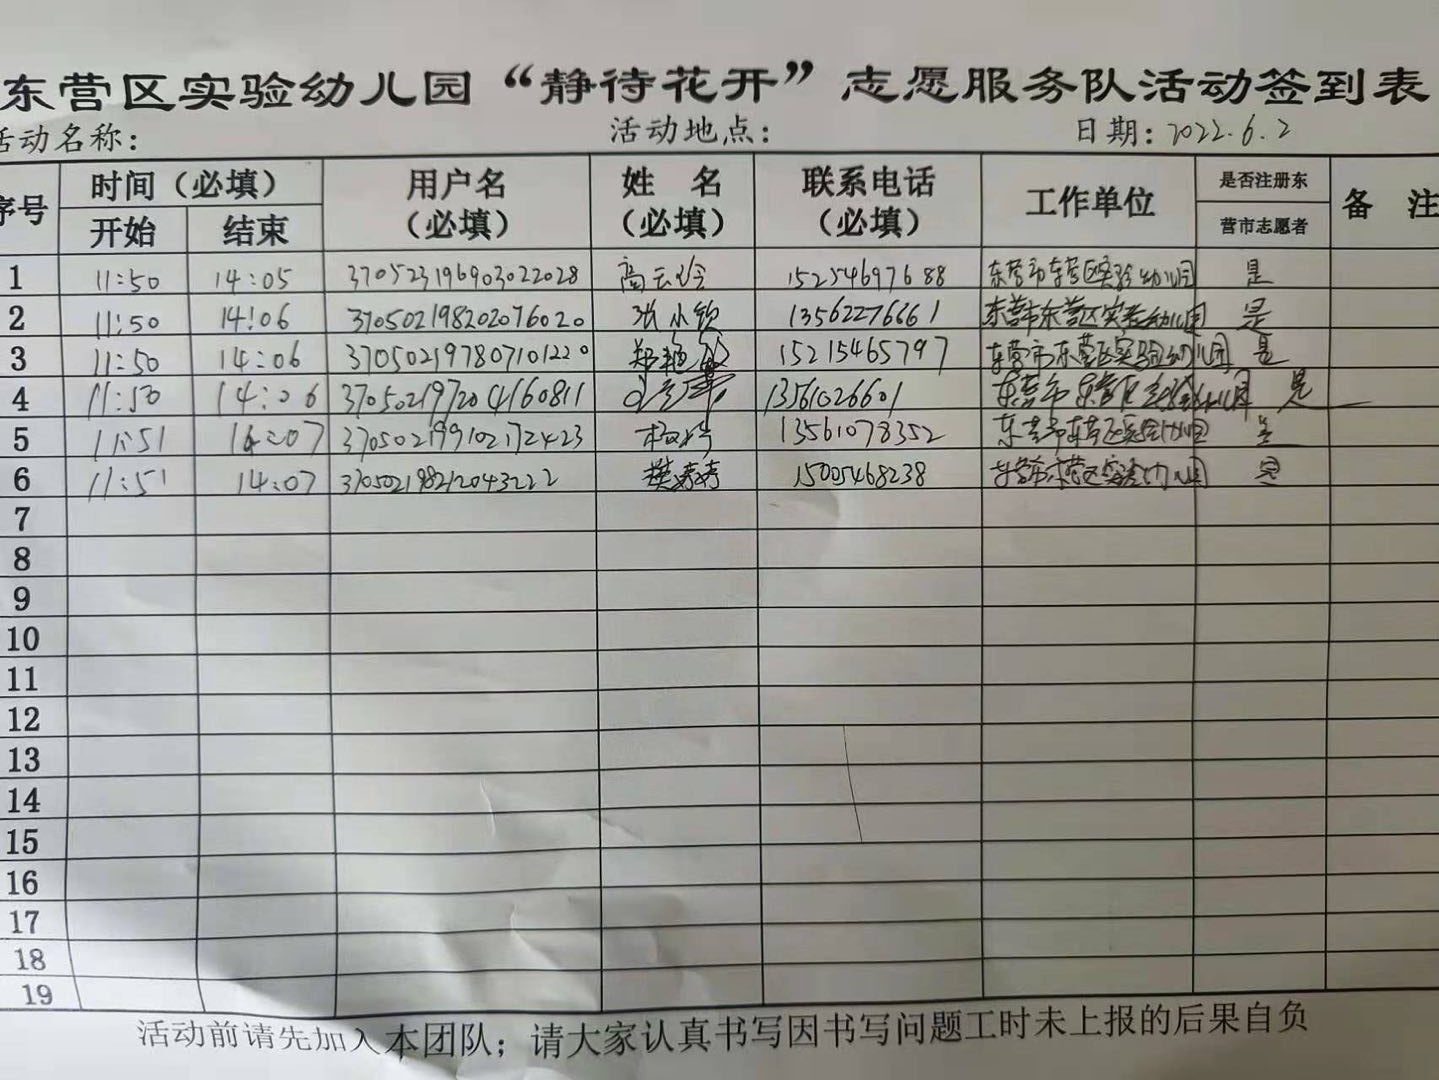 东营区实验幼儿园“静待花开”志愿服务队活动签到表
活动名称： 活动地点： 日期：2022.6.2
序号 时间（必填） 用户名（必填） 姓 名（必填） 联系电话（必填） 工作单位 是否注册东营市志愿者 备 注
开始 结束
1 11:50 14:05 370523196903022028 高云 15254697688 东营市东营区实验幼儿园 是
2 11:50 14:06 370502198202076020 张小 13562276661 东营市东营区实验幼儿园 是
3 11:50 14:06 370502197807101220 郑艳 15215465797 东营市东营区实验幼儿园 是
4 11:50 14:06 370502197204160811 13561026601 东营市东营区实验幼儿园 是
5 11:51 14:07 370502199102172423 杨 13561078352 东营市东营区实验幼儿园 是
6 11:51 14:07 370502198212043222 樊婷婷 15005468238 东营市东营区实验幼儿园 是
7
8
9
10
11
12
13
14
15
16
17
18
19
活动前请先加入本团队；请大家认真书写因书写问题工时未上报的后果自负